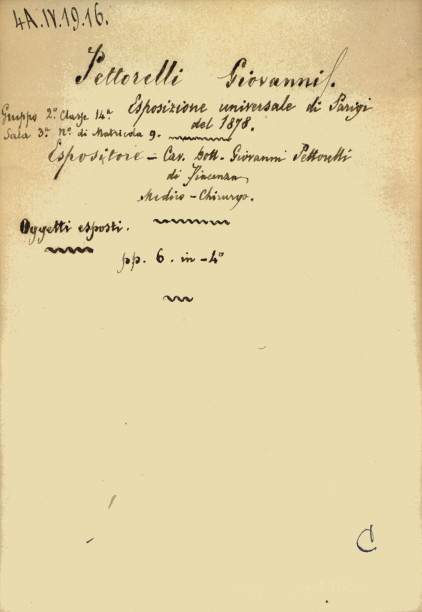 4A.IV.19.16.
Pettorelli Giovanni.
Esposizione universale di Parigi
Gruppo 2º Classe 14ª
del 1878.
Sala 3ª Nº di Matricola 9.
Espositore - Cav. Dott. Giovanni Pettorelli
di Piacenza
Medico - Chirurgo.
Oggetti esposti.
pp. 6. in-4º
C